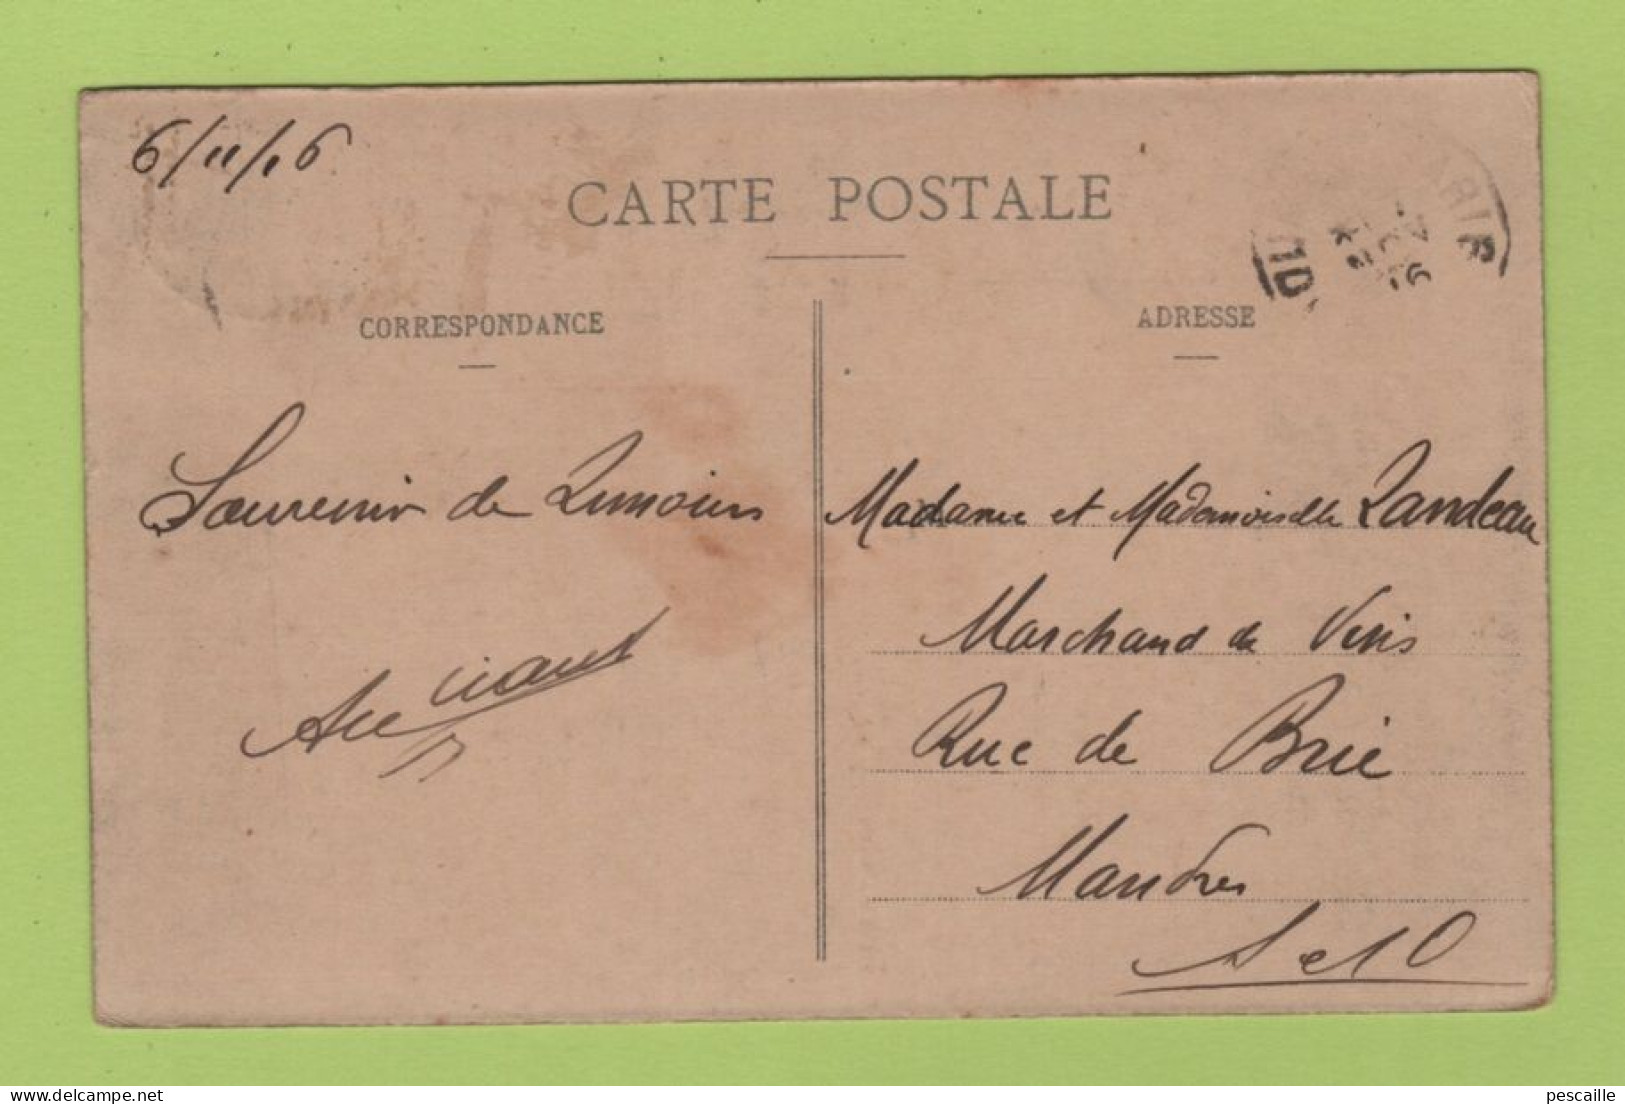 6/11/16
CARTE POSTALE
CORRESPONDANCE
ADRESSE
Souvenir de Limours
Madame et Mademoiselle Landeau
Marchand de Vins
Rue de Brie
Mandres
S et O
pescaille